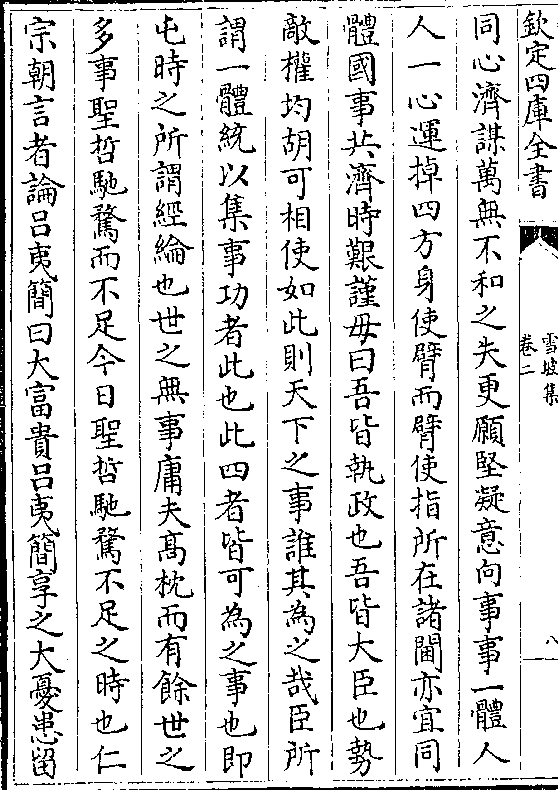 欽定四庫全書
雪坡集
卷二
八
同心濟謀萬無不和之失更願堅凝意向事事一體人
人一心運掉四方身使臂而臂使指所在諸閫亦宜同
體國事共濟時艱謹毋曰吾皆執政也吾皆大臣也勢
敵權均胡可相使如此則天下之事誰其為之哉臣所
謂一體統以集事功者此也此四者皆可為之事也即
屯時之所謂經綸也世之無事庸夫髙枕而有餘世之
多事聖哲馳騖而不足今日聖哲馳騖不足之時也仁
宗朝言者論呂夷簡曰大富貴呂夷簡享之大憂患留